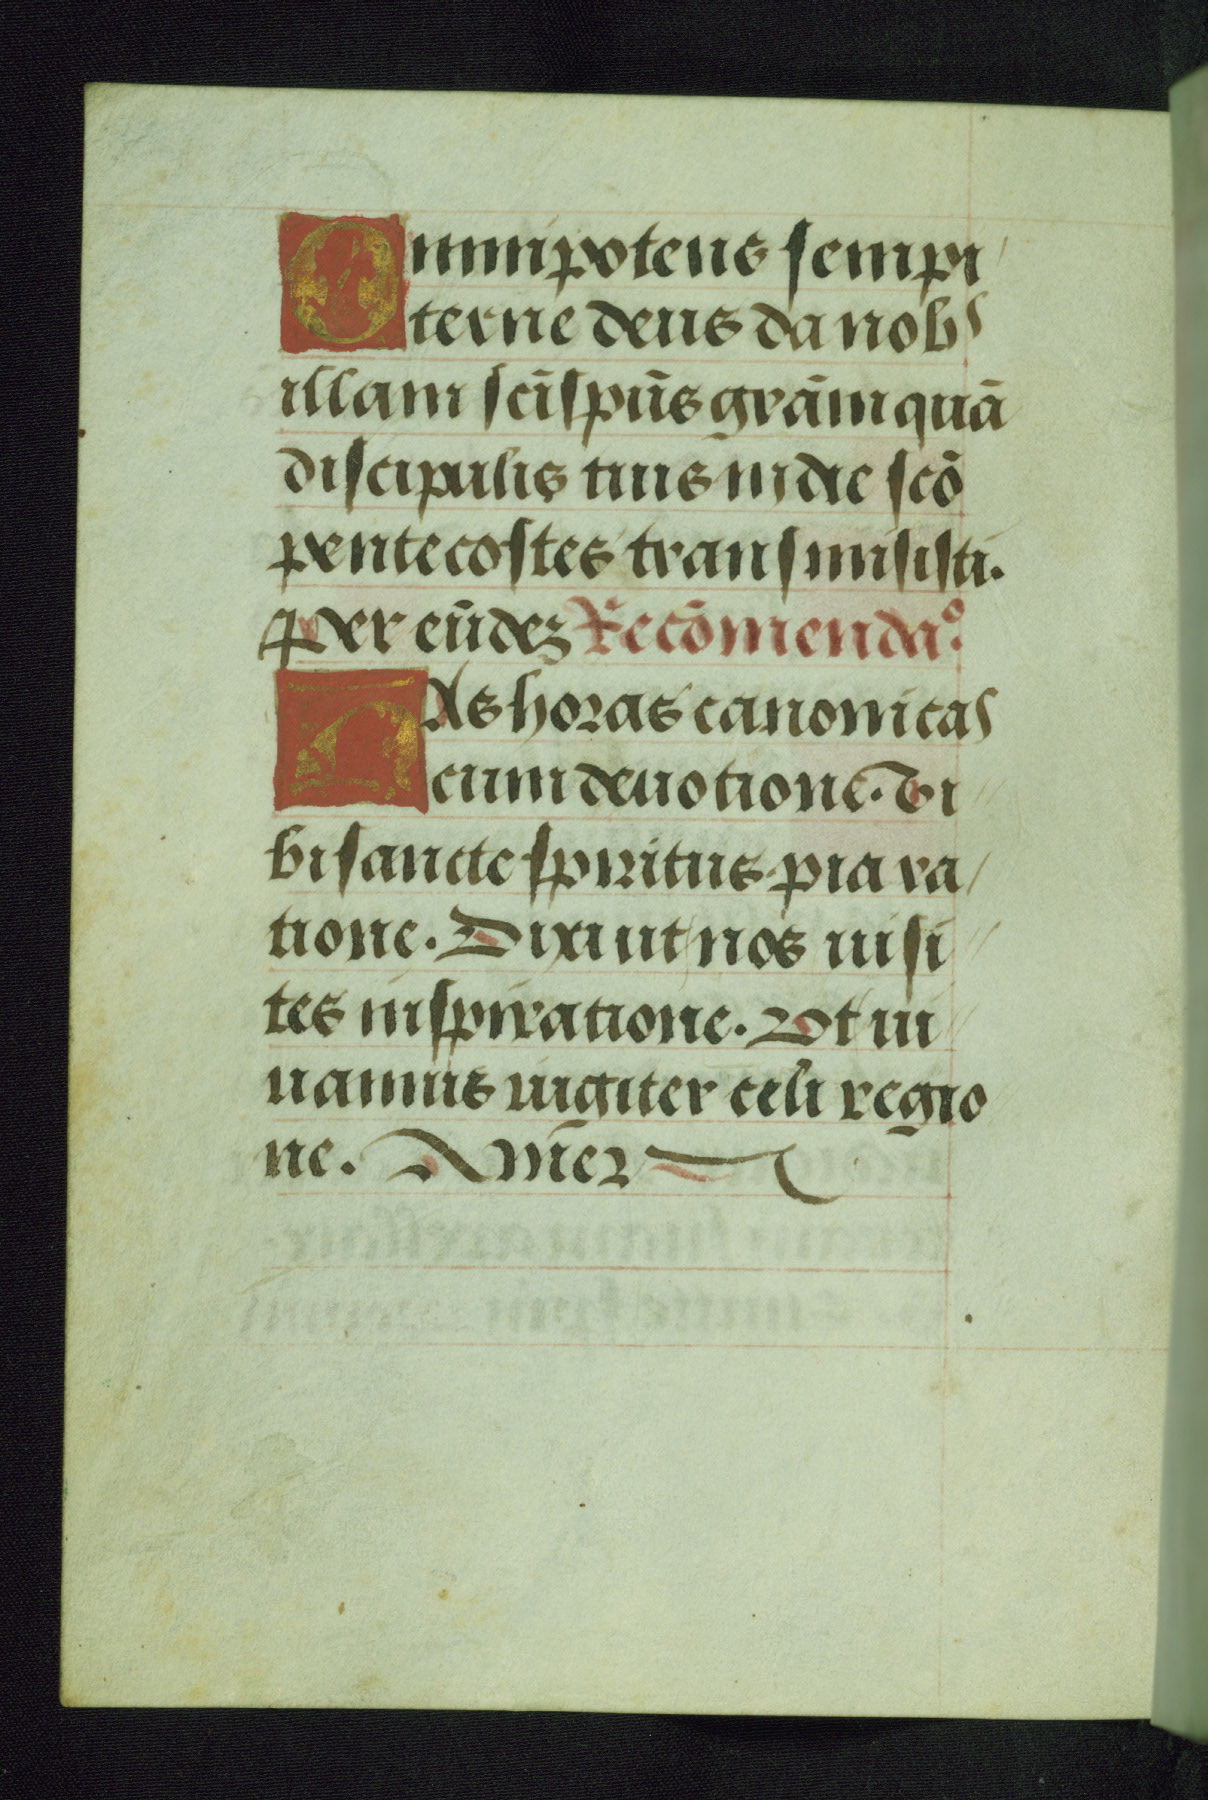 Omnipotens sempi
terne deus da nobˢ
illam scī spūs grām quā
discipulis tuis in die scō
pentecostes transmisisti.
per eūdez Recōmendaº.
Has horas canonicas
cum deuotione. Ti
bi sancte spiritus pia ra
tione. Dixi ut nos uisi
tes inspiratione. Vt ui
uamus uigiter celi regio
ne. Amēz